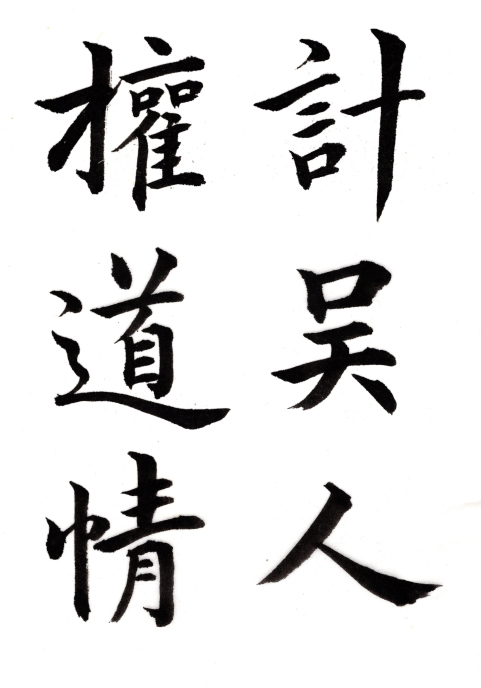 計吴人
權道情